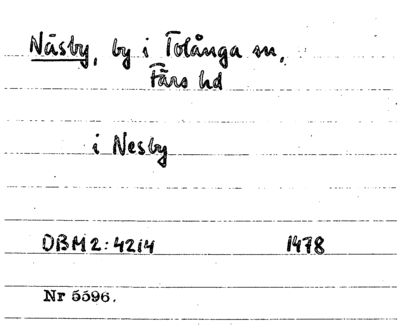 Näsby, by i Tolånga sn,
Färs hd
i Nesby
DBM2:4214 1478
Nr 5596.